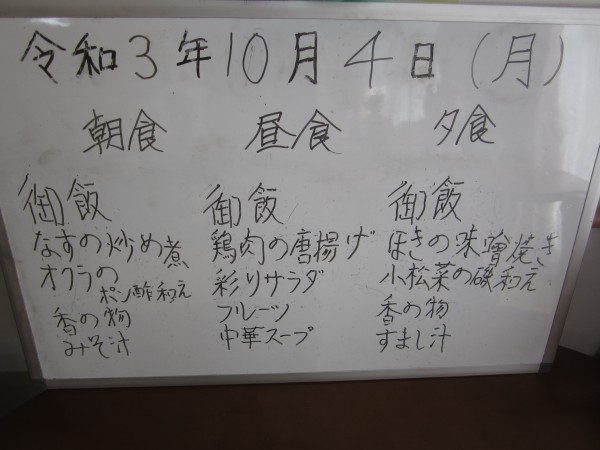 令和3年10月4日(月)
朝食
御飯
なすの炒め煮
オクラの
ポン酢和え
香の物
みそ汁
昼食
御飯
鶏肉の唐揚げ
彩りサラダ
フルーツ
中華スープ
夕食
御飯
ほきの味噌焼き
小松菜の磯和え
香の物
すまし汁